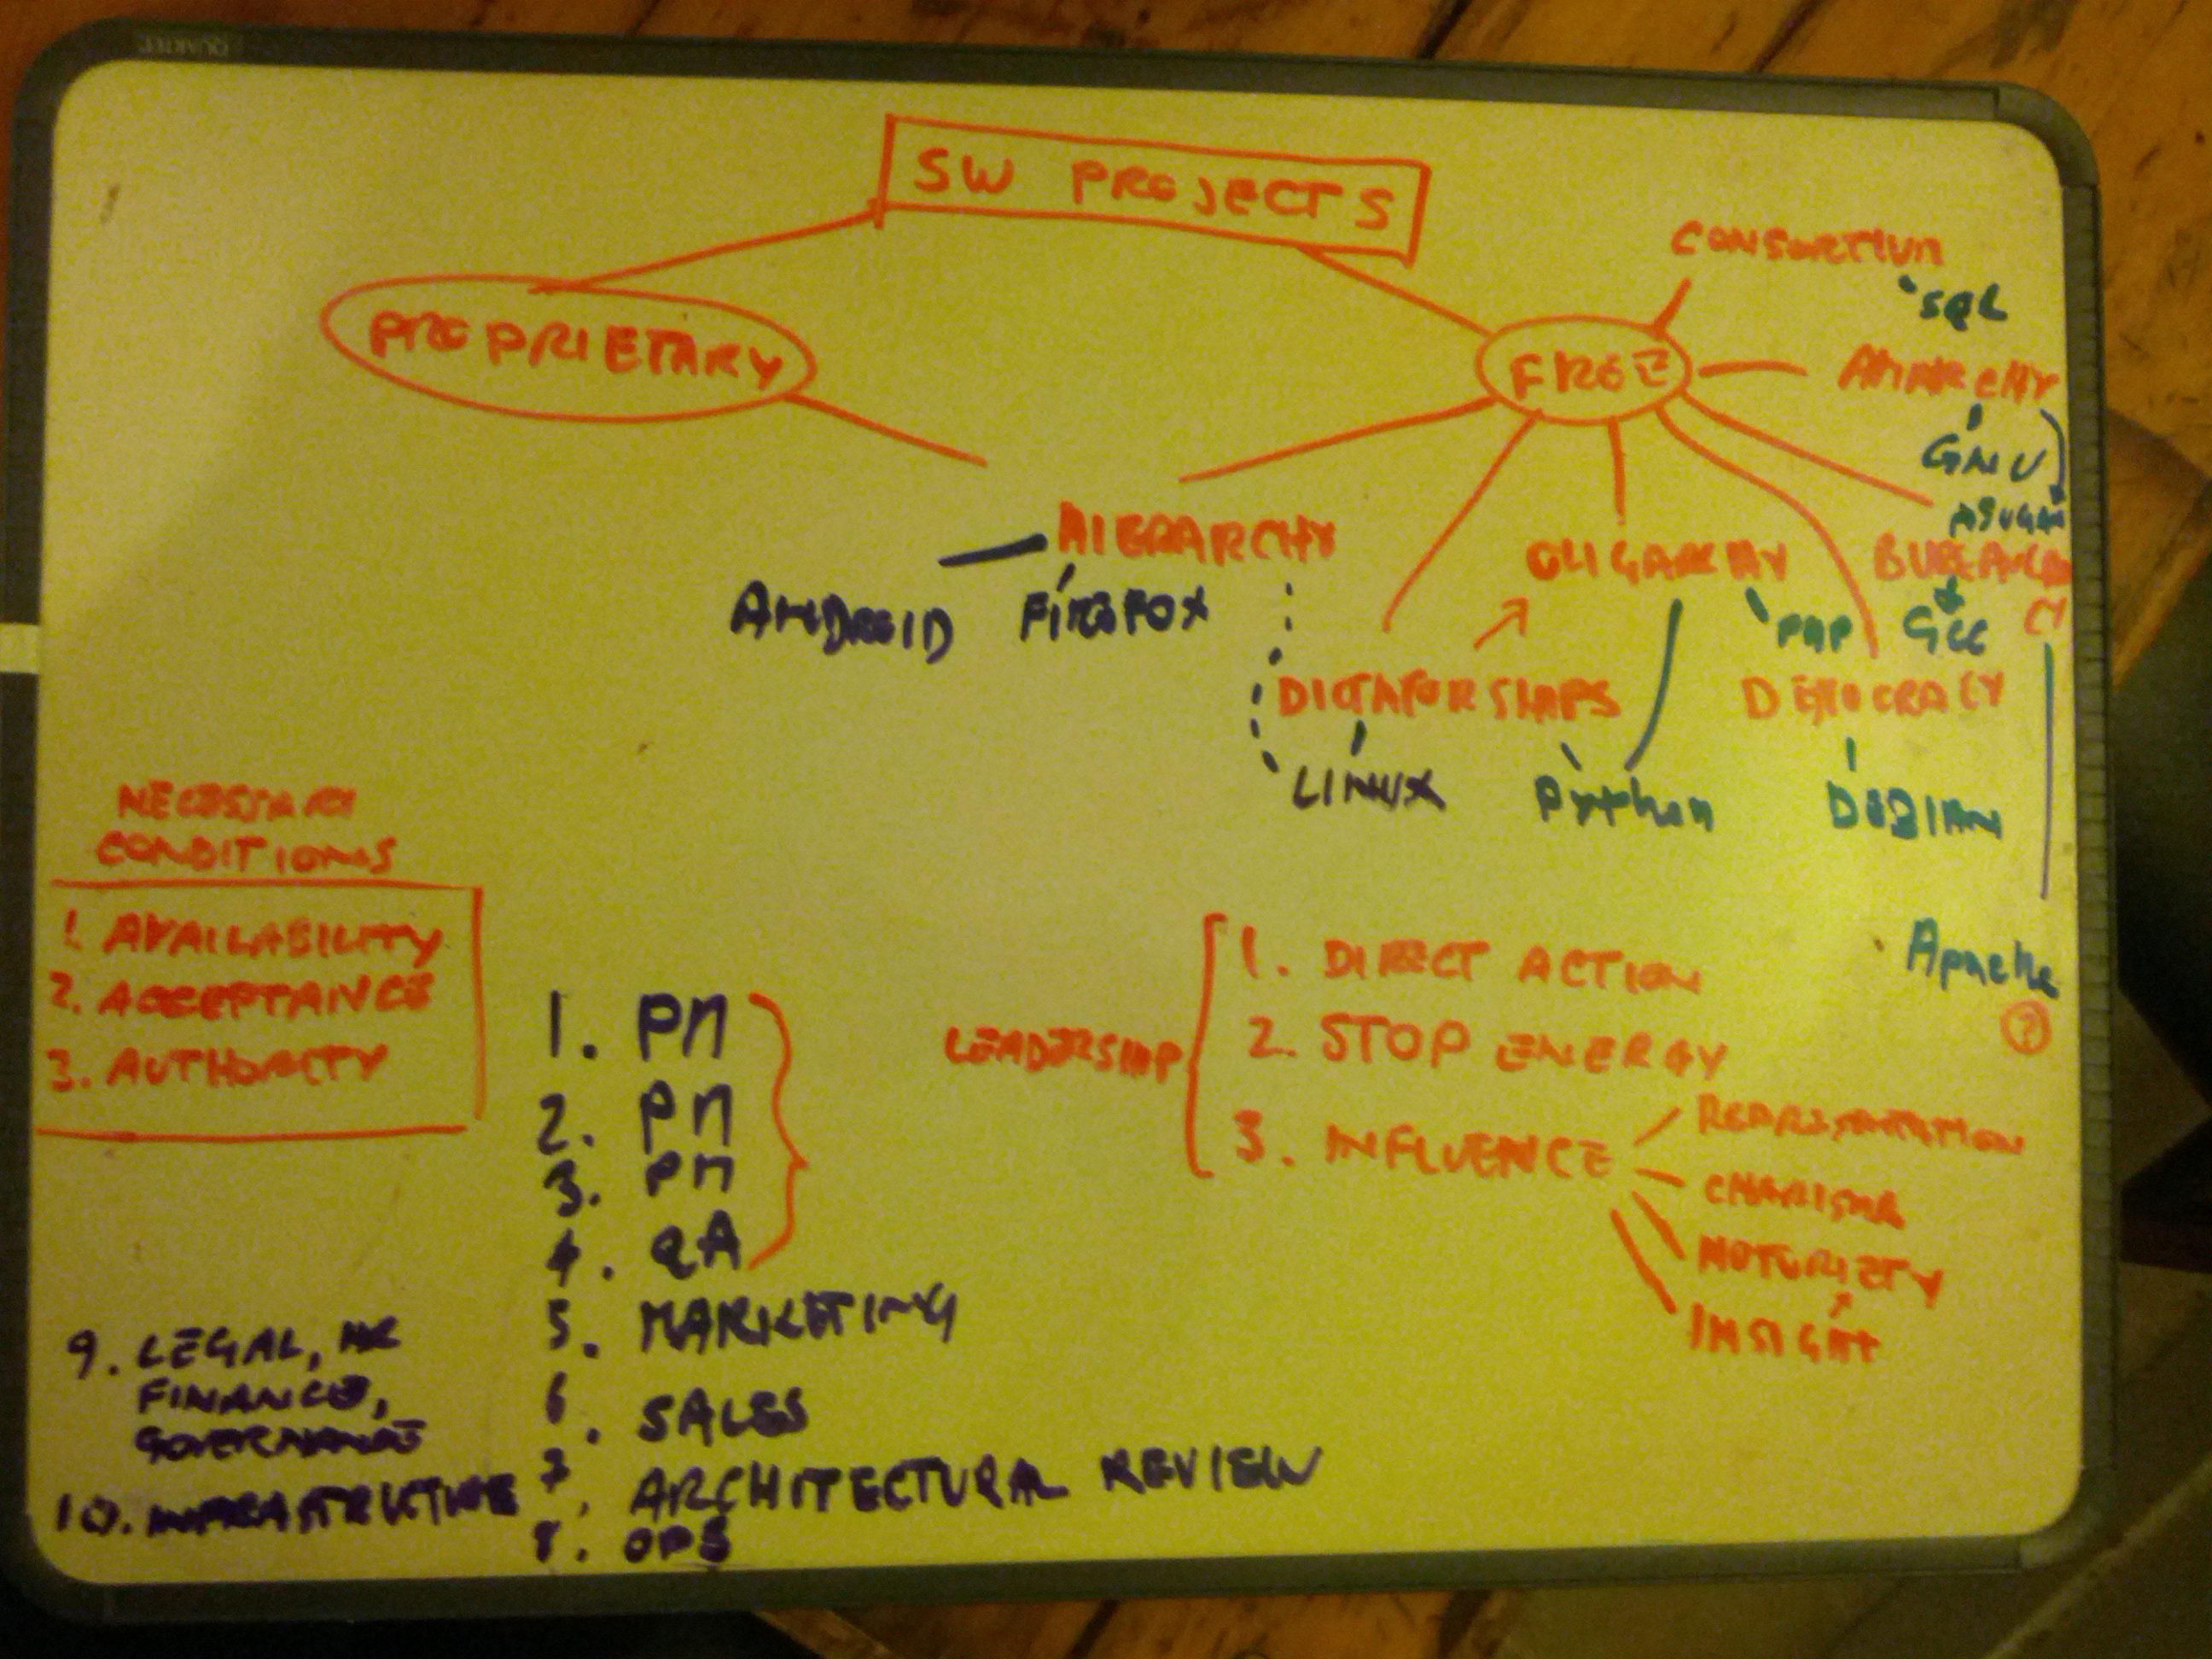 QUARTET
SW PROJECTS
CONSORTIUM
SQL
PROPRIETARY
FREE
ANARCHY
GNU
HIERARCHY
OLIGARCHY
BUREAUCRA
CY
ANDROID FIREFOX
PHP GCC
DICTATORSHIPS
DEMOCRACY
LINUX
Python
DEBIAN
NECESSARY
CONDITIONS
1. AVAILABILITY
2. ACCEPTANCE
3. AUTHORITY
Apache
?
LEADERSHIP
1. DIRECT ACTION
2. STOP ENERGY
3. INFLUENCE
REPRESENTATION
CHARISMA
NOTORIETY
INSIGHT
1. PM
2. PM
3. PM
4. QA
5. MARKETING
6. SALES
7. ARCHITECTURAL REVIEW
8. OPS
9. LEGAL, HR
FINANCE,
GOVERNANCE
10. INFRASTRUCTURE